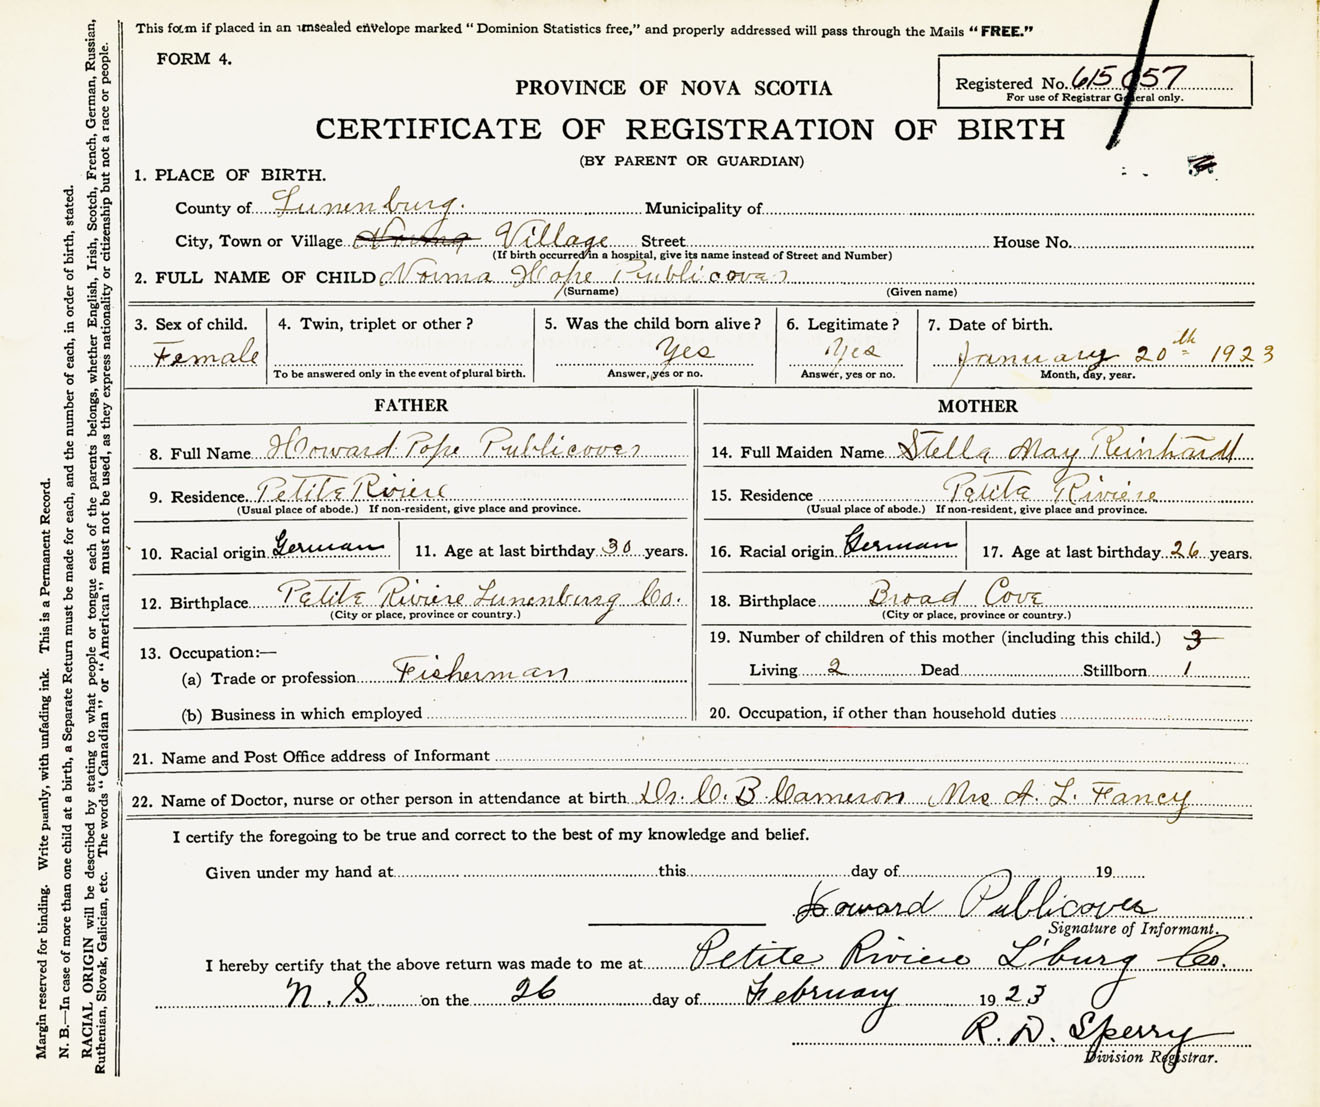 This form if placed in an unsealed envelope marked "Dominion Statistics free," and properly addressed will pass through the Mails "FREE."
FORM 4.
Registered No. 615057
For use of Registrar General only.
PROVINCE OF NOVA SCOTIA
CERTIFICATE OF REGISTRATION OF BIRTH
(BY PARENT OR GUARDIAN)
1. PLACE OF BIRTH.
County of Lunenburg. Municipality of
City, Town or Village Village Street House No.
(If birth occurred in a hospital, give its name instead of Street and Number)
2. FULL NAME OF CHILD Norma Hope Publicover
(Surname) (Given name)
3. Sex of child. 4. Twin, triplet or other? 5. Was the child born alive? 6. Legitimate? 7. Date of birth.
Female Yes Yes January 20th 1923
To be answered only in the event of plural birth. Answer, yes or no. Answer, yes or no. Month, day, year.
FATHER MOTHER
8. Full Name Howard Pope Publicover 14. Full Maiden Name Stella May Reinhardt
9. Residence Petite Riviere 15. Residence Petite Riviere
(Usual place of abode.) If non-resident, give place and province. (Usual place of abode.) If non-resident, give place and province.
10. Racial origin German 11. Age at last birthday 30 years. 16. Racial origin German 17. Age at last birthday 26 years.
12. Birthplace Petite Riviere Lunenburg Co. 18. Birthplace Broad Cove
(City or place, province or country.) (City or place, province or country.)
13. Occupation:— 19. Number of children of this mother (including this child.) 3
(a) Trade or profession Fisherman Living 2 Dead Stillborn 1
(b) Business in which employed 20. Occupation, if other than household duties
21. Name and Post Office address of Informant
22. Name of Doctor, nurse or other person in attendance at birth Dr. C. B. Cameron Mrs A. L. Fancy
I certify the foregoing to be true and correct to the best of my knowledge and belief.
Given under my hand at this day of 19
Howard Publicover
Signature of Informant.
I hereby certify that the above return was made to me at Petite Riviere L'burg Co.
N. S on the 26 day of February 1923
R. D. Sperry
Division Registrar.
Margin reserved for binding. Write plainly, with unfading ink. This is a Permanent Record.
N. B.—In case of more than one child at a birth, a Separate Return must be made for each, and the number of each, in order of birth, stated.
RACIAL ORIGIN will be described by stating to what people or tongue each of the parents belongs, whether English, Irish, Scotch, French, German, Russian,
Ruthenian, Slovak, Galician, etc. The words "Canadian" or "American" must not be used, as they express nationality or citizenship but not a race or people.